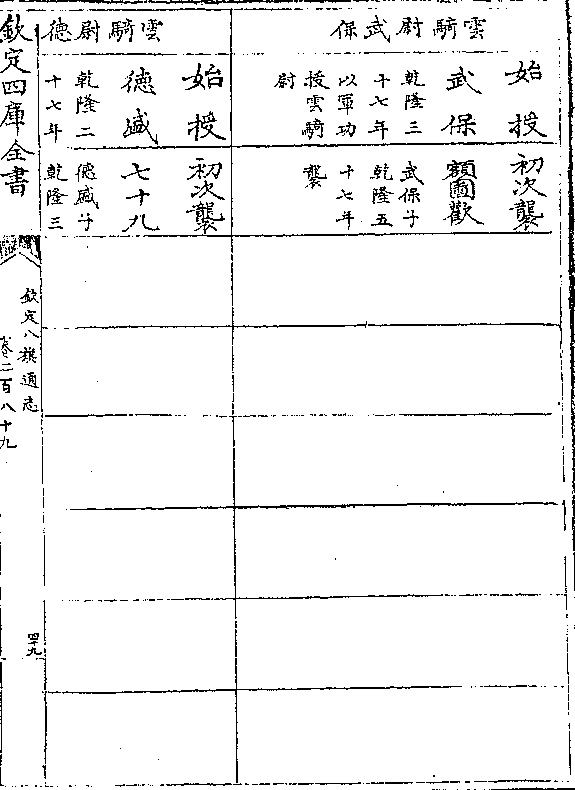 雲騎尉武保
始授
武保
乾隆三
十七年
以軍功
授雲騎
尉
初次襲
額圖歡
武保子
乾隆五
十七年
襲
雲騎尉德
始授
德盛
乾隆二
十七年
初次襲
七十九
德盛子
乾隆三
欽定四庫全書
欽定八旗通志
卷二百八十九
四十九